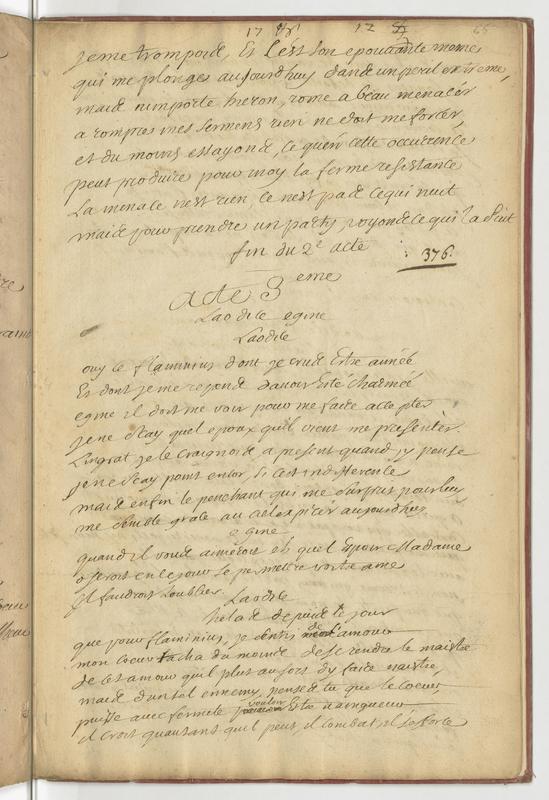 66
jeme trompois, Et c'est son epouvante meme
qui me plonge aujourdhuy dans un peril extreme,
mais nimporte hieron, rome a beau menacer
a rompre mes sermens rien ne doit me forcer,
et du moins essayons, ce qu'en cette occurrence
peut produire pour moy la ferme resistance
La menace n'est rien, ce n'est pas ce qui nuit
mais pour prendre un party voyons ce qui la suit
fin du 2e acte
: 376.
acte 3 eme
Laodice egine
Laodice
ouy ce flaminius dont je crus Estre aimée
Et dont je me repens davoir Esté charmée
egine il doit me voir pour me faire accepter
je ne scay quel epoux qu'il vient me presenter
L'ingrat je le craignois a present quand j'y pense
je ne scay point encor, si c'est indifference
mais enfin le penchant qui me surprit pour luy
me semble grace au ciel expirer aujourdhuy
egine
quand il vous aimeroit eh quel Espoir Madame
oseroit en ce jour se permettre votre ame
Il faudroit l'oublier
Laodice
helas depuis le jour
que pour flaminius, je sentis de l'amour
mon coeur tacha du moins de se rendre le maistre
de cet amour qu'il plut au sort dy faire naistre,
mais d'un tel ennemy, penses tu que le coeur
puisse avec fermeté vouloir Estre vainqueur
il croit qu'autant qu'il peut, il combat il s'efforce